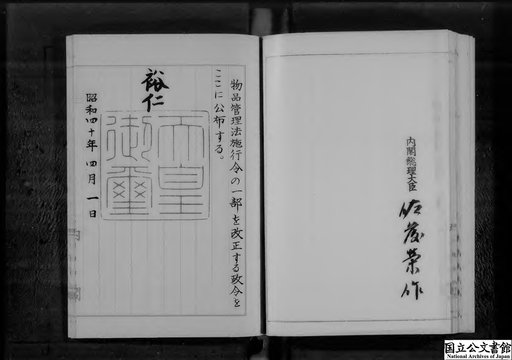 物品管理法施行令の一部を改正する政令を
ここに公布する。
裕仁
天皇
御璽
昭和四十年四月一日
内閣総理大臣
佐藤榮作
国立公文書館
National Archives of Japan